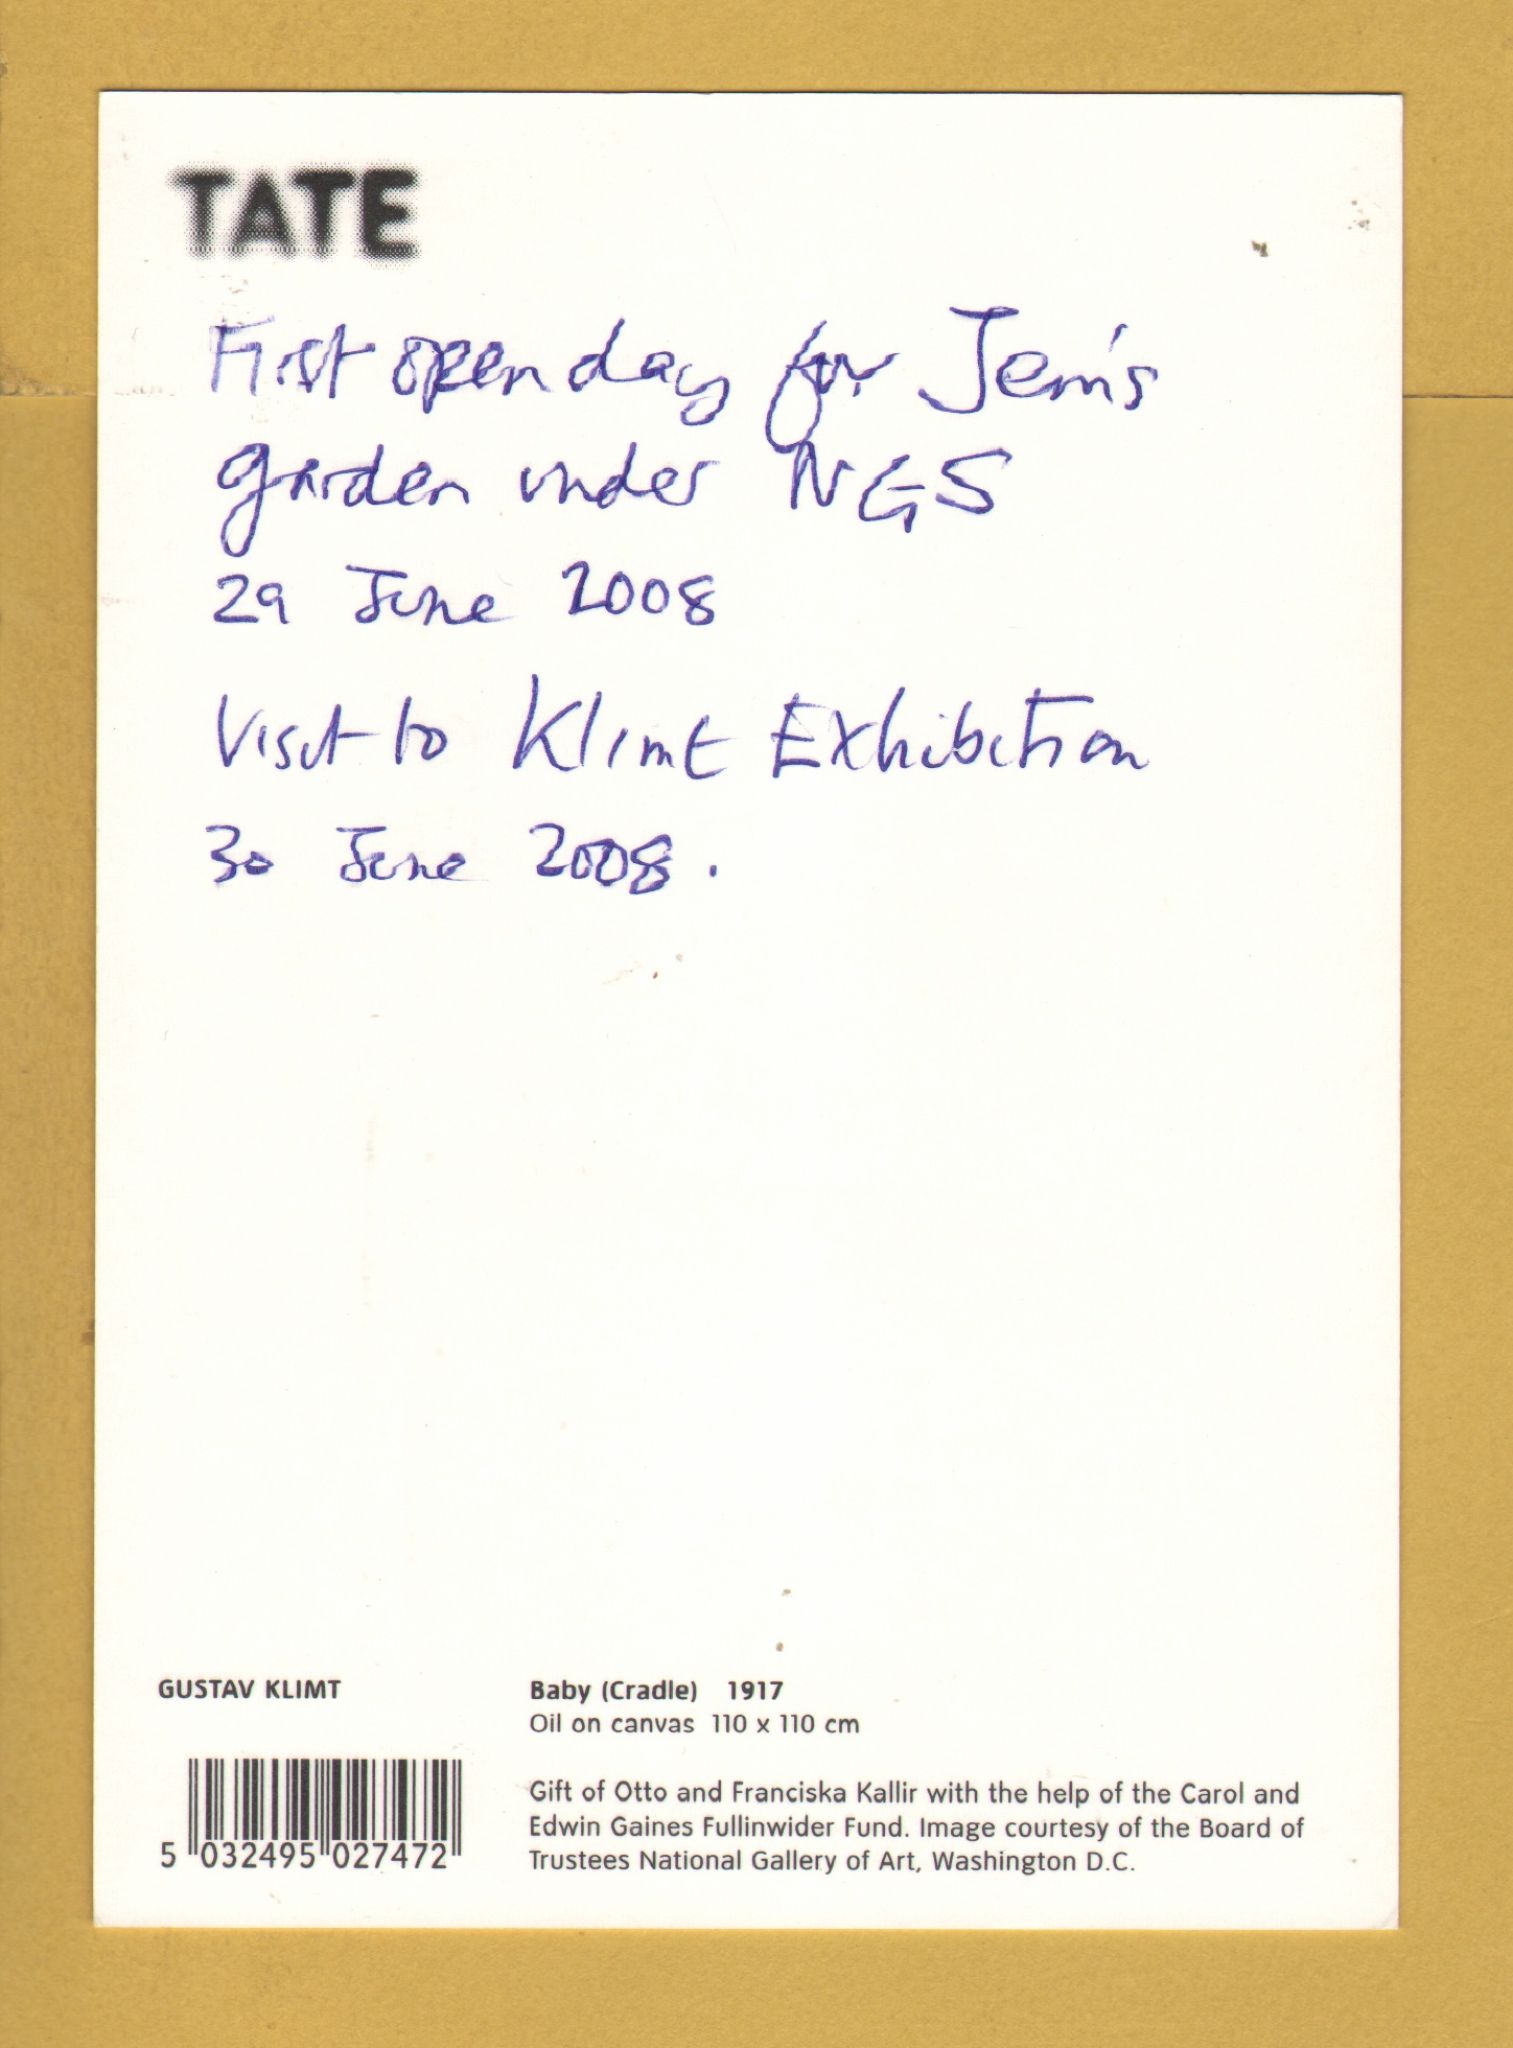 TATE
First open day for Jem's
garden under NGS
29 June 2008
Visit to Klimt Exhibition
30 June 2008.
GUSTAV KLIMT
Baby (Cradle) 1917
Oil on canvas 110 x 110 cm
Gift of Otto and Franciska Kallir with the help of the Carol and
Edwin Gaines Fullinwider Fund. Image courtesy of the Board of
Trustees National Gallery of Art, Washington D.C.
5 032495 027472